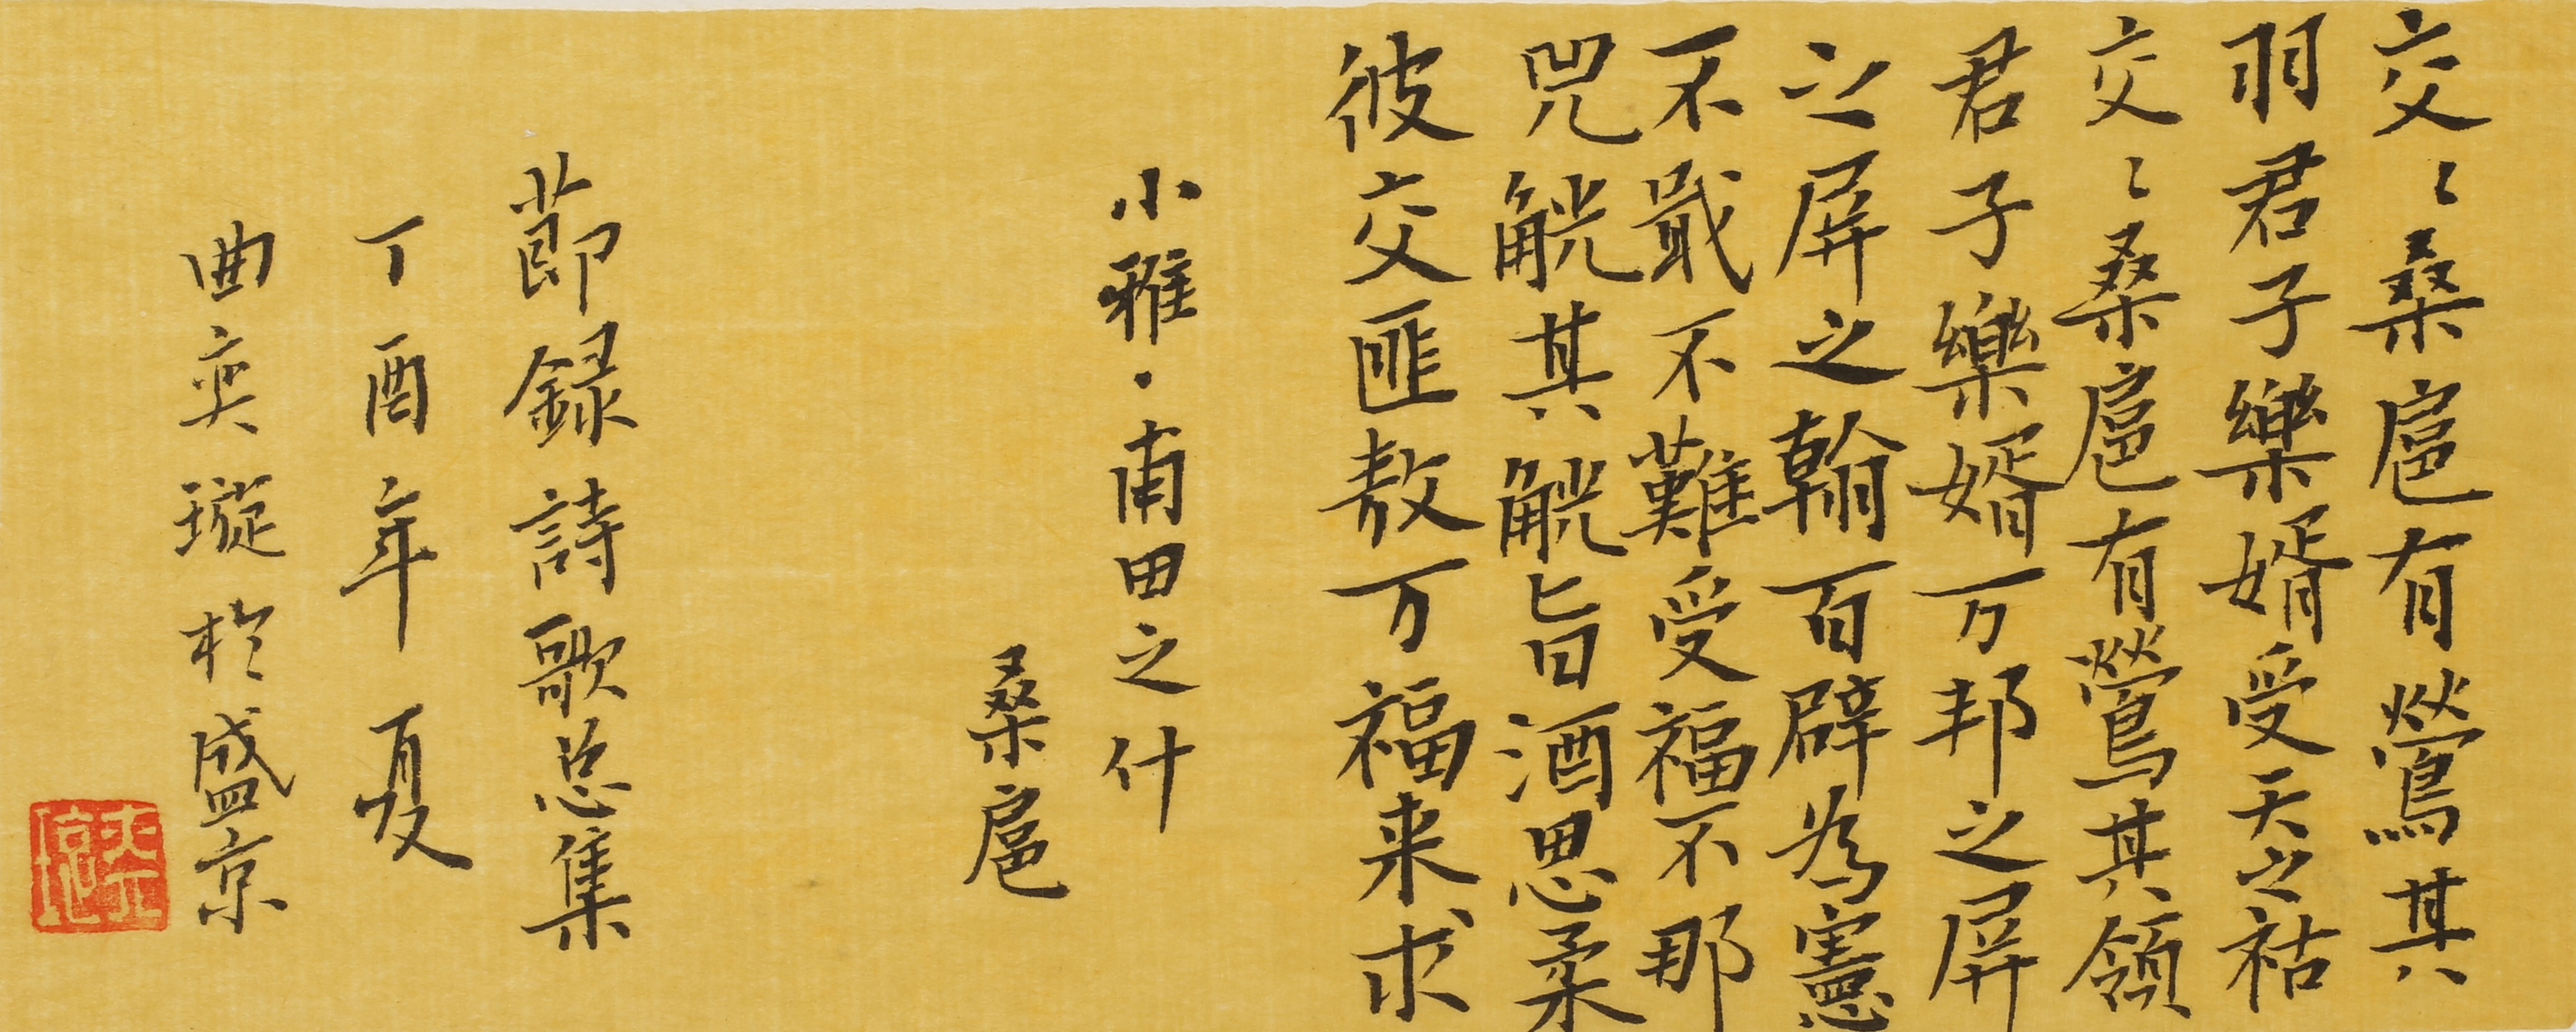 交〻桑扈有鶯其
羽君子樂婿受天之祜
交〻桑扈有鶯其領
君子樂婿万邦之屏
之屏之翰百辟為憲
不戢不難受福不那
兕觥其觩旨酒思柔
彼交匪敖万福来求
小雅·甫田之什
桑扈
節録詩歌总集
丁酉年夏
曲奕璇於盛京